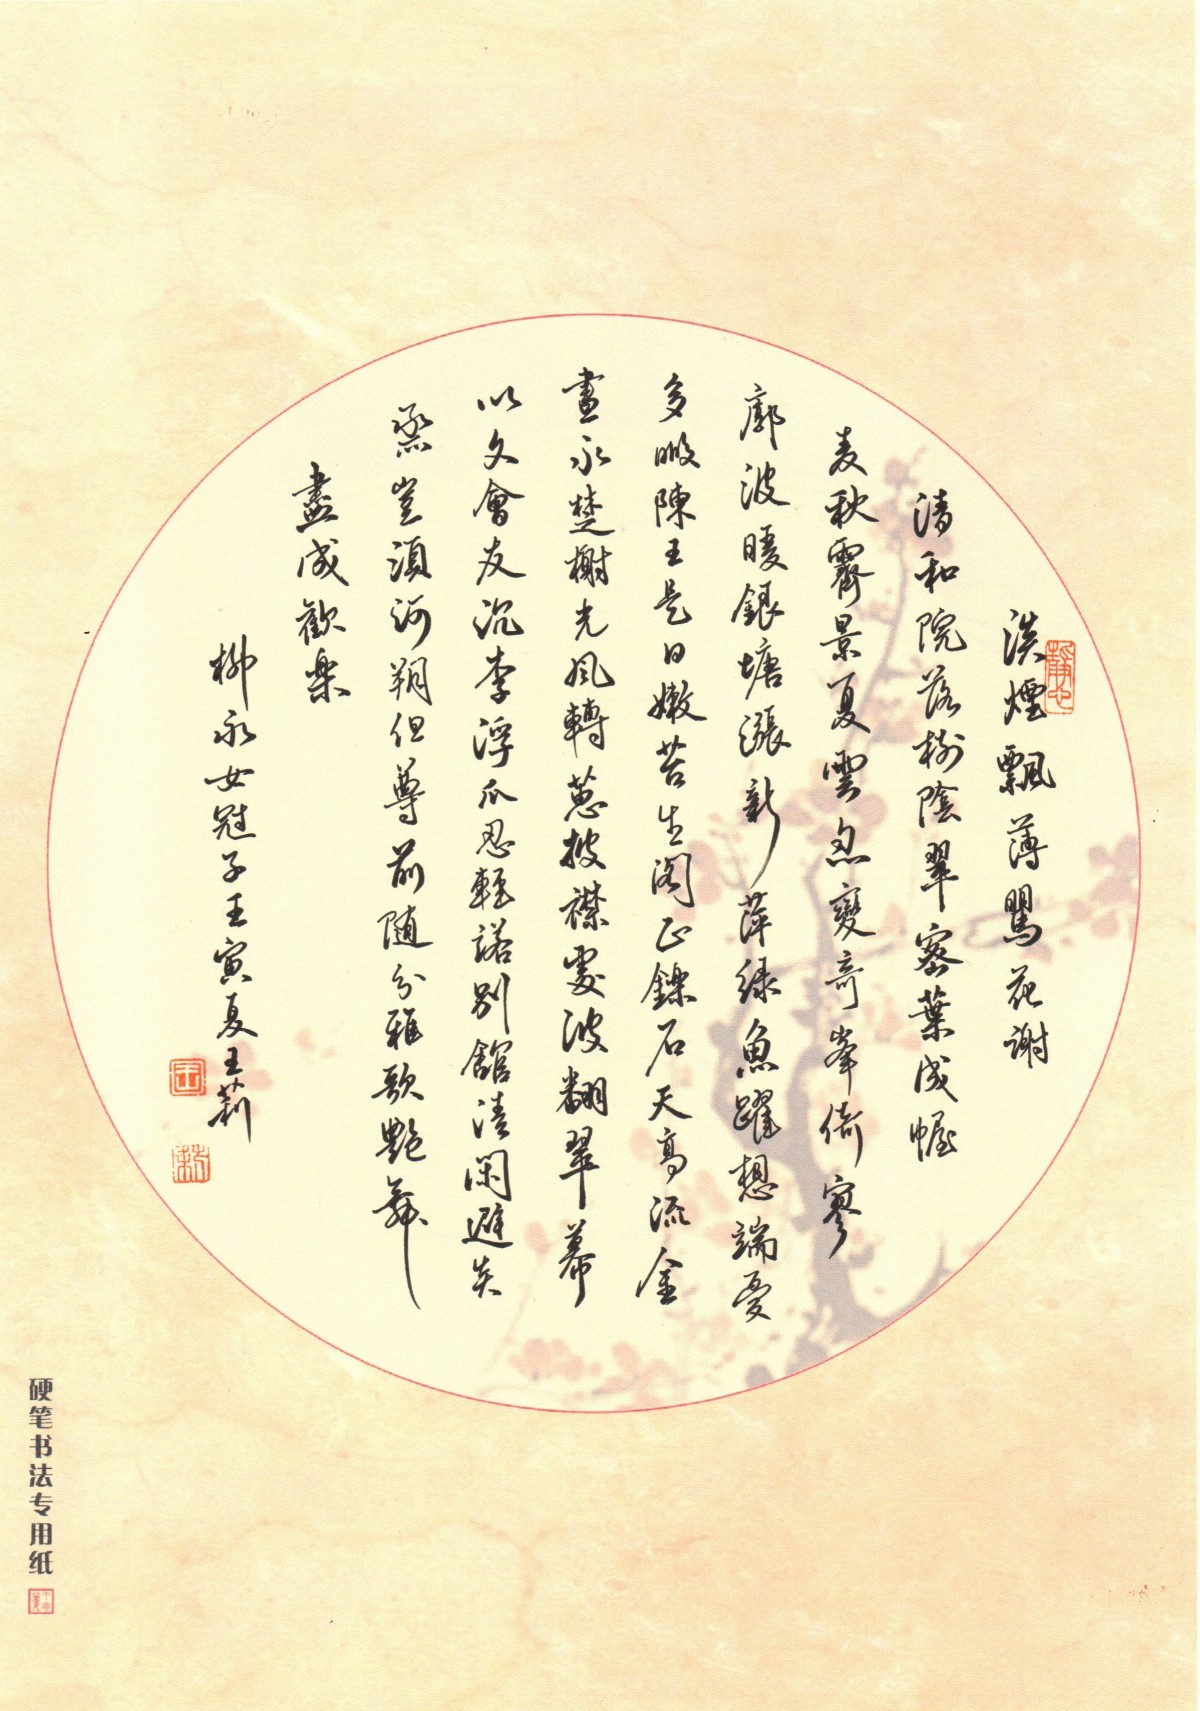 靜心
淡煙飄薄鶯花謝
清和院落樹陰翠密葉成幄
麦秋霽景夏雲忽變奇峯倚寥
廓波暖銀塘漲新萍綠魚躍想端憂
多暇陳王是日嫩苔生阁正鑠石天高流金
晝永楚榭光風轉蕙披襟處波翻翠幕
以文會友沉李浮瓜忍輕諾别館清閑避炎
蒸豈須河朔但尊前随分雅歌艷舞
盡成歡樂
柳永女冠子壬寅夏王莉
王
莉
硬笔书法专用纸